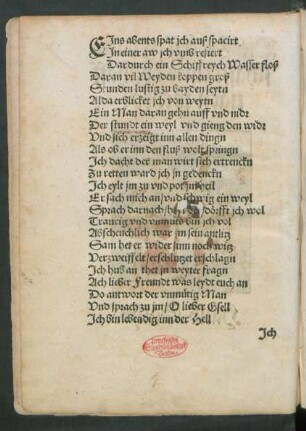 EIns abents spat jch auß spacirt
In einer aw jch vmb refiert
Dardurch ein Schiffreych Wasser floß
Daran vil Weyden koppen groß
Stunden lustig zu bayden seytn
Alda erblicket jch von weytn
Ein Man daran gehn auff vnd nidr
Der stundt ein weyl vnd gieng den widr
Vnd sich erzeigt inn allen dingn
Als ob er inn den fluß wolt springn
Ich dacht der man wirt sich ertrenckn
Zu retten ward jch jn gedenckn
Ich eylt zu jm zu vnd
Er sach mich an vnd schwig ein weyl
Sprach darnach dörfft jch wol
Traurig vnd vnmuts bin jch vol
Abscheuchlich war jm sein antlitz
Sam het er wider sinn noch witz
Verzweiffelt erschlutzet erschlagn
Ich hub an thet jn weyter fragn
Ach lieber Freundt was leydt euch an
Do antwort der vnmütig Man
Vnd sprach zu jm / O lieber Gsell
Ich bin lebendig inn der Hell
Ich